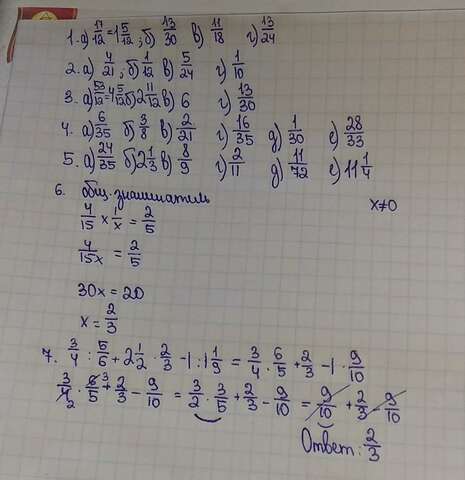 1. а) 17/12 = 1 5/12; б) 13/30 в) 11/18 г) 13/24
2. а) 4/21; б) 1/12 в) 5/24 г) 1/10
3. а) 53/12 = 4 5/12 б) 2 11/12 в) 6 г) 13/30
4. а) 6/35 б) 3/8 в) 2/21 г) 16/35 д) 1/30 е) 28/33
5. а) 24/35 б) 2 1/3 в) 8/9 г) 2/11 д) 11/72 е) 11 1/4
6. общ. знаменатель
x≠0
4/15 × 1/x = 2/5
4/15x = 2/5
30x = 20
x = 2/3
7. 3/4 : 5/6 + 2 1/2 · 2/3 - 1 : 1 1/9 = 3/4 · 6/5 + 2/3 - 1 · 9/10
3/4 2 · 6 3/5 + 2/3 - 9/10 = 3/2 · 3/5 + 2/3 - 9/10 = 9/10 + 2/3 - 9/10
Ответ: 2/3